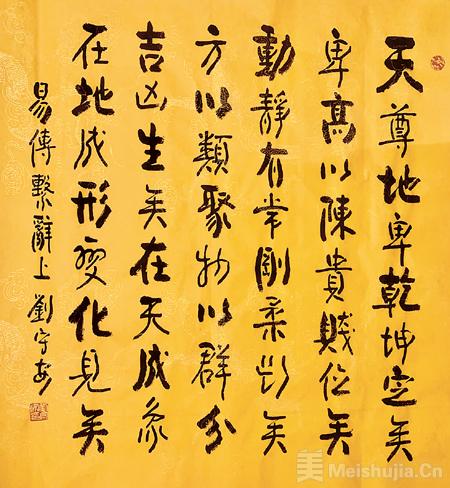 天尊地卑乾坤定矣
卑高以陳貴賤位矣
動靜有常剛柔斷矣
方以類聚物以群分
吉凶生矣在天成象
在地成形變化見矣
易傳繫辭上 劉守安
美 Meishujia.Cn